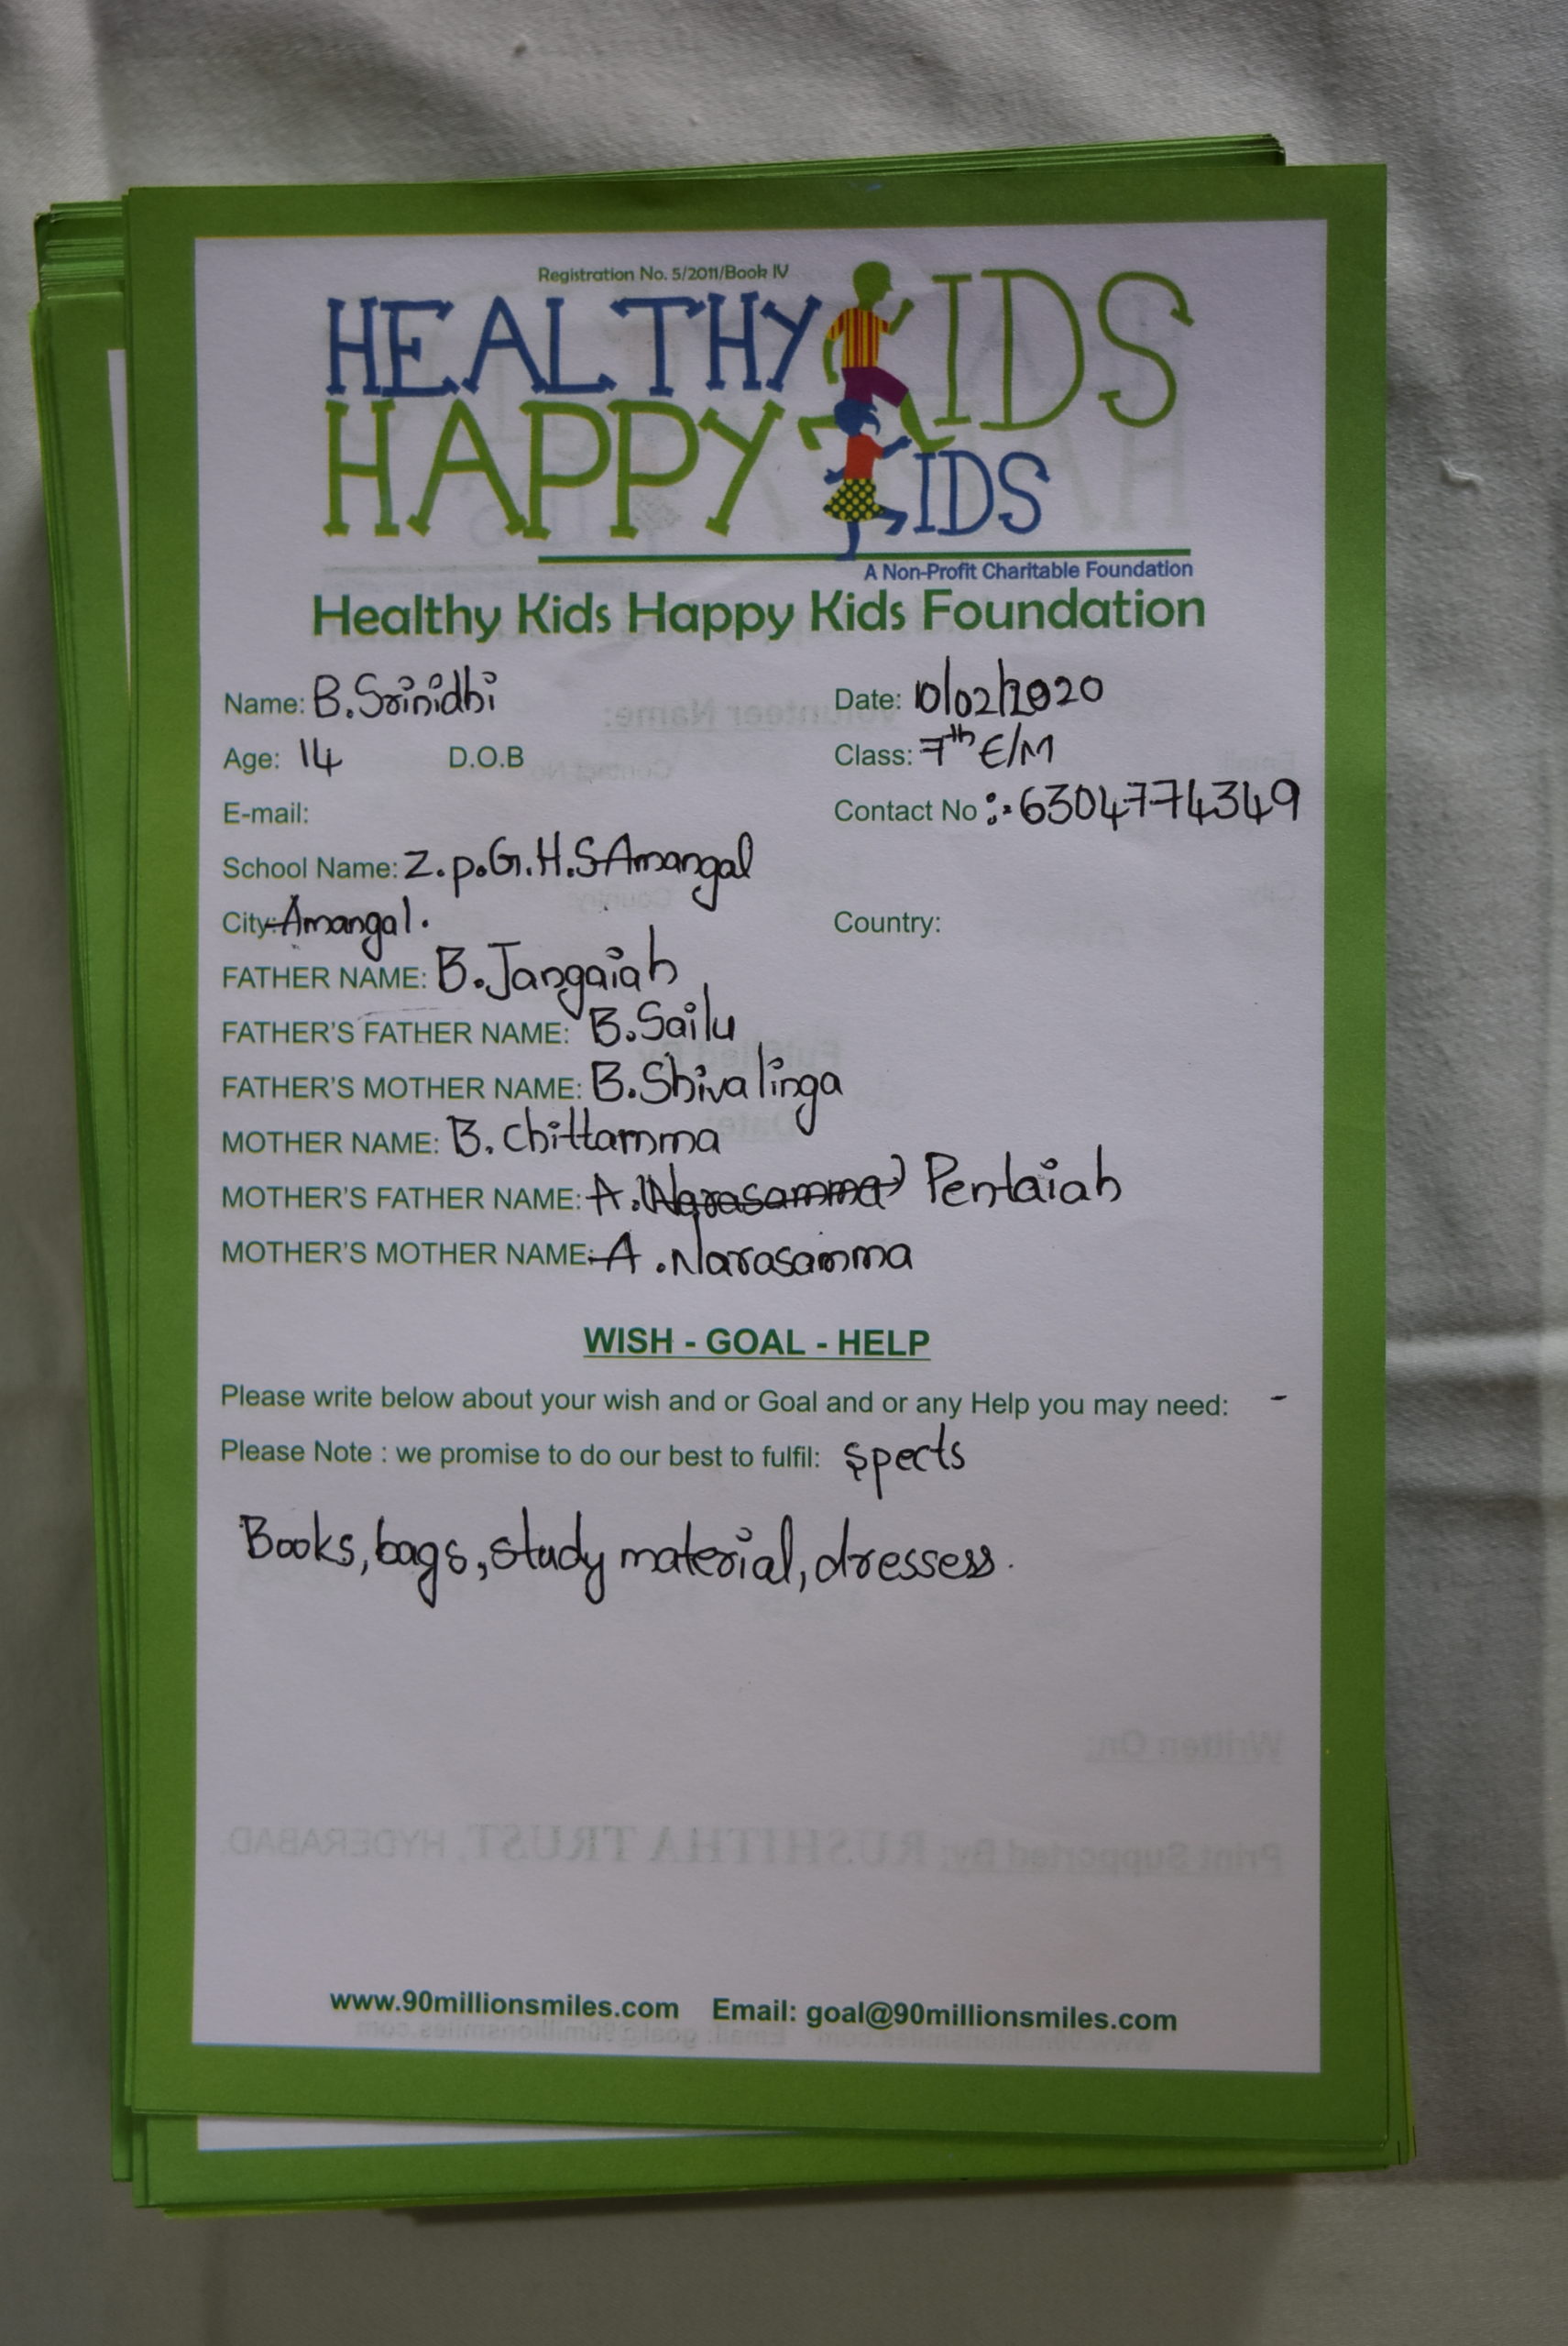 Registration No. 5/2011/Book IV
HEALTHY KIDS
HAPPY KIDS
A Non-Profit Charitable Foundation
Healthy Kids Happy Kids Foundation
Name: B.Srinidhi Date: 10/02/2020
Age: 14 D.O.B Class: 7th E/M
E-mail: Contact No :- 6304774349
School Name: Z.p.G.H.S Amangal
City: Amangal. Country:
FATHER NAME: B.Jangaiah
FATHER'S FATHER NAME: B.Sailu
FATHER'S MOTHER NAME: B.Shivalinga
MOTHER NAME: B.chittamma
MOTHER'S FATHER NAME: A.(Narasamma) Pentaiah
MOTHER'S MOTHER NAME: A.Narasamma
WISH - GOAL - HELP
Please write below about your wish and or Goal and or any Help you may need: -
Please Note : we promise to do our best to fulfil: spects
Books, bags, study material, dressess.
Written On:
Print Supported By: RUSHITHA TRUST, HYDERABAD.
www.90millionsmiles.com Email: goal@90millionsmiles.com